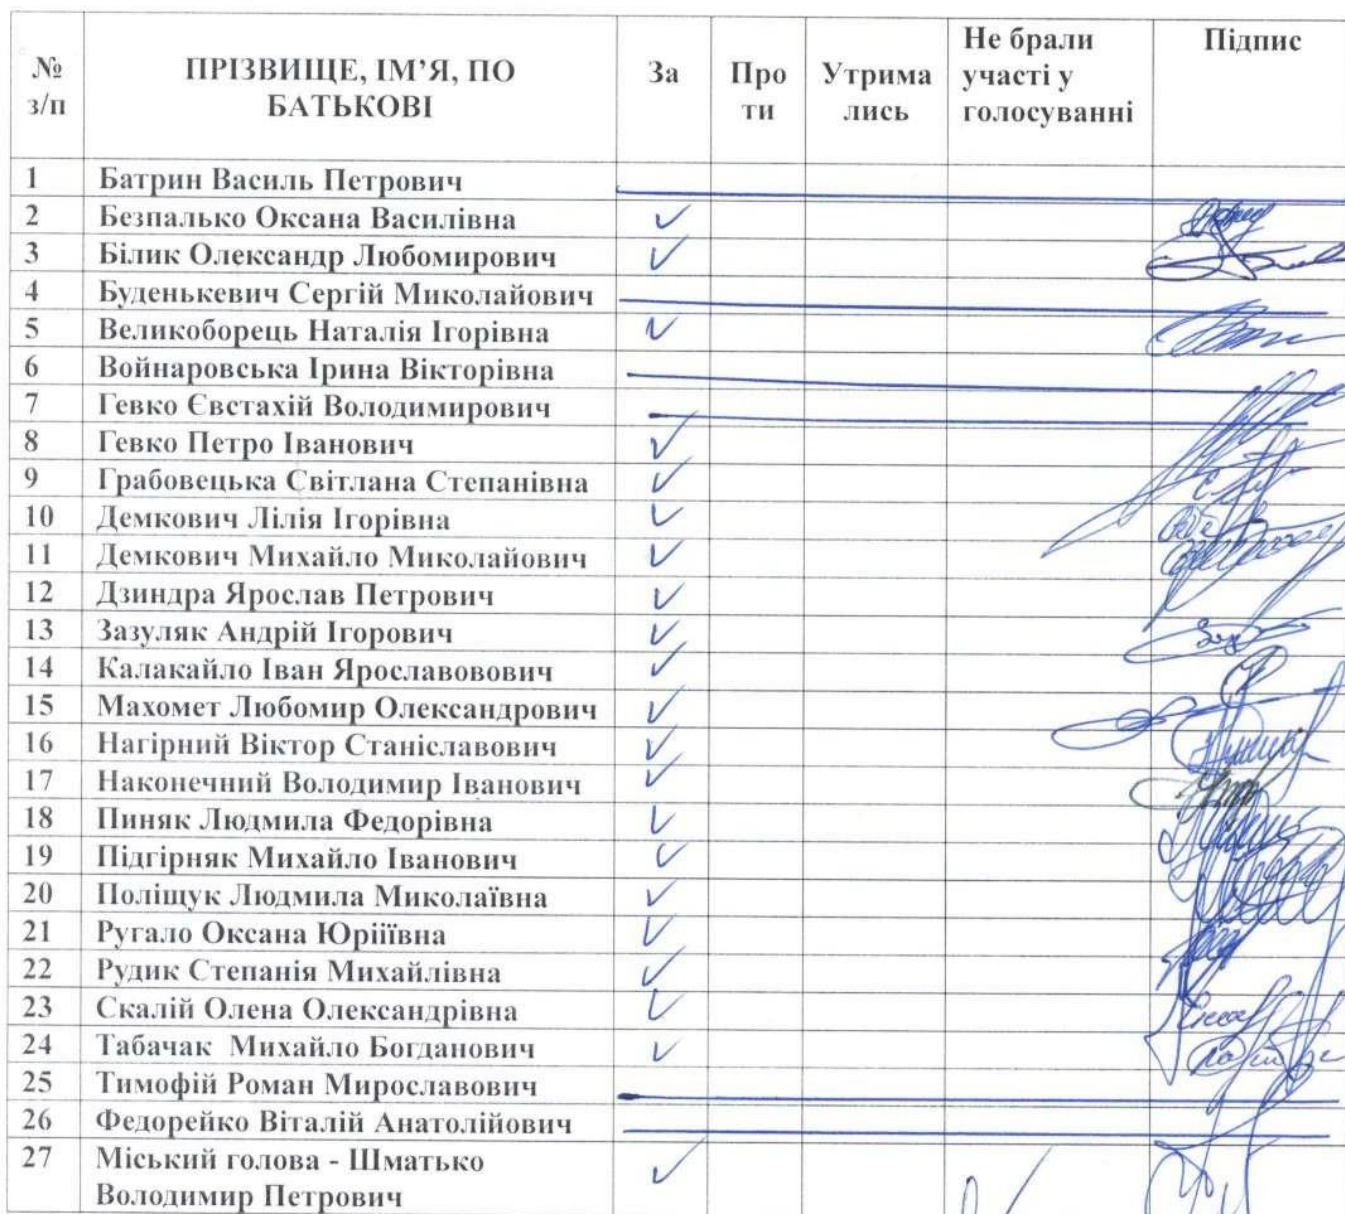 № з/п ПРІЗВИЩЕ, ІМ’Я, ПО БАТЬКОВІ За Про ти Утрима лись Не брали участі у голосуванні Підпис
1 Батрин Василь Петрович
2 Безпалько Оксана Василівна ✓
3 Білик Олександр Любомирович ✓
4 Буденькевич Сергій Миколайович
5 Великоборець Наталія Ігорівна ✓
6 Войнаровська Ірина Вікторівна
7 Гевко Євстахій Володимирович
8 Гевко Петро Іванович ✓
9 Грабовецька Світлана Степанівна ✓
10 Демкович Лілія Ігорівна ✓
11 Демкович Михайло Миколайович ✓
12 Дзиндра Ярослав Петрович ✓
13 Зазуляк Андрій Ігорович ✓
14 Калакайло Іван Ярославовович ✓
15 Махомет Любомир Олександрович ✓
16 Нагірний Віктор Станіславович ✓
17 Наконечний Володимир Іванович ✓
18 Пиняк Людмила Федорівна ✓
19 Підгірняк Михайло Іванович ✓
20 Поліщук Людмила Миколаївна ✓
21 Ругало Оксана Юріїївна ✓
22 Рудик Степанія Михайлівна ✓
23 Скалій Олена Олександрівна ✓
24 Табачак Михайло Богданович ✓
25 Тимофій Роман Мирославович
26 Федорейко Віталій Анатолійович
27 Міський голова - Шматько ✓
Володимир Петрович